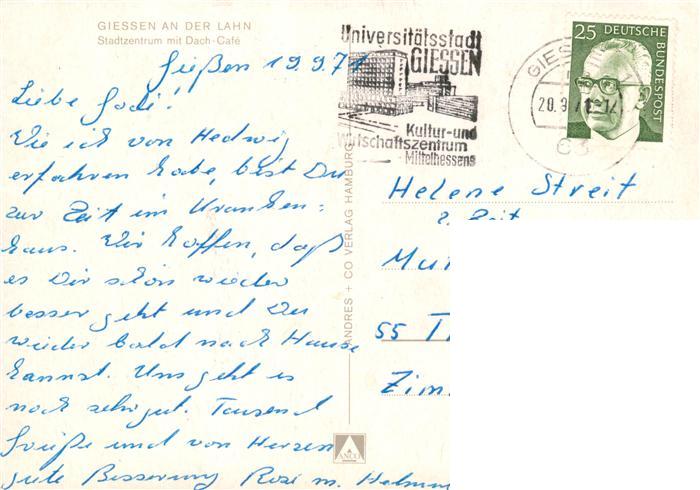 GIESSEN AN DER LAHN
Stadtzentrum mit Dach-Café
Gießen 19.9.71
Liebe Godi!
Wie ich von Hedwig
erfahren habe, bist Du
zur Zeit im Kranken=
haus. Wir hoffen, daß
es Dir schon wieder
besser geht und Du
wieder bald nach Hause
kannst. Uns geht es
noch sehr gut. Tausend
Grüße und von Herzen
gute Besserung Rosi m. Helmu
ANDRES + CO VERLAG HAMBURG
ANCO
Universitätsstadt
GIESSEN
Kultur-und
Wirtschaftszentrum
Mittelhessens
GIES
20.9.71-1
63
25 DEUTSCHE
BUNDESPOST
Helene Streit
z. Zeit
Mut
55 T
Zim